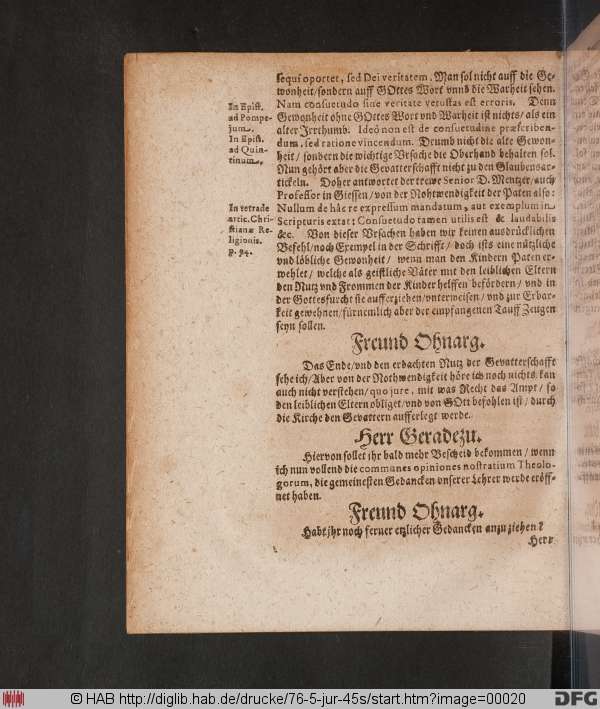 sequi oportet, sed Dei veritatem. Man sol nicht auff die Ge-
wonheit/sondern auff GOttes Wort vnnd die Warheit sehen.
Nam consuetudo sine veritate vetustas est erroris. Denn
Gewonheit ohne GOttes Wort vnd Warheit ist nichts/als ein
alter Jrrthumb. Ideò non est de consuetudine præscriben-
dum, sed ratione vincendum. Drumb nicht die alte Gewon-
heit/sondern die wichtige Vrsache die Oberhand behalten sol.
Nun gehört aber die Gevatterschafft nicht zu den Glaubensar-
tickeln. Doher antwortet der trewe Senior D. Mentzer/auch
Professor in Giessen/von der Nohtwendigkeit der Paten also:
Nullum de hâc re expressum mandatum, aut exemplum in
Scripturis extat: Consuetudo tamen utilis est & laudabilis
&c. Von dieser Vrsachen haben wir keinen ausdrücklichen
Befehl/noch Exempel in der Schrifft/ doch ists eine nützliche
vnd löbliche Gewonheit/ wenn man den Kindern Paten er-
wehlet/ welche als geistliche Väter mit den leiblichen Eltern
den Nutz vnd Frommen der Kinder helffen befördern/ vnd in
der Gottesfurcht sie aufferziehen/vnterweisen/ vnd zur Erbar-
keit gewehnen/fürnemlich aber der empfangenen Tauff Zeugen
seyn sollen.
In Epist.
ad Pompe-
jum.
In Epist.
ad Quin-
tinum.
artic. Chri-
stianæ Re-
ligionis.
p. 94.
Freund Ohnarg.
Das Ende/vnd den erdachten Nutz der Gevatterschafft
sehe ich/Aber von der Nothwendigkeit höre ich noch nichts/kan
auch nicht verstehen/quo jure, mit was Recht das Ampt/ so
den leiblichen Eltern obliget/vnd von GOtt befohlen ist/ durch
die Kirche den Gevattern aufferlegt werde.
Herr Geradezu.
Hiervon sollet ihr bald mehr Bescheid bekommen/ wenn
ich nun vollend die communes opiniones nostratium Theolo-
gorum, die gemeinesten Gedancken vnserer Lehrer werde eröff-
net haben.
Freund Ohnarg.
Habt jhr noch ferner etzlicher Gedancken anzuziehen?
Herr
© HAB http://diglib.hab.de/drucke/76-5-jur-45s/start.htm?image=00020
DFG